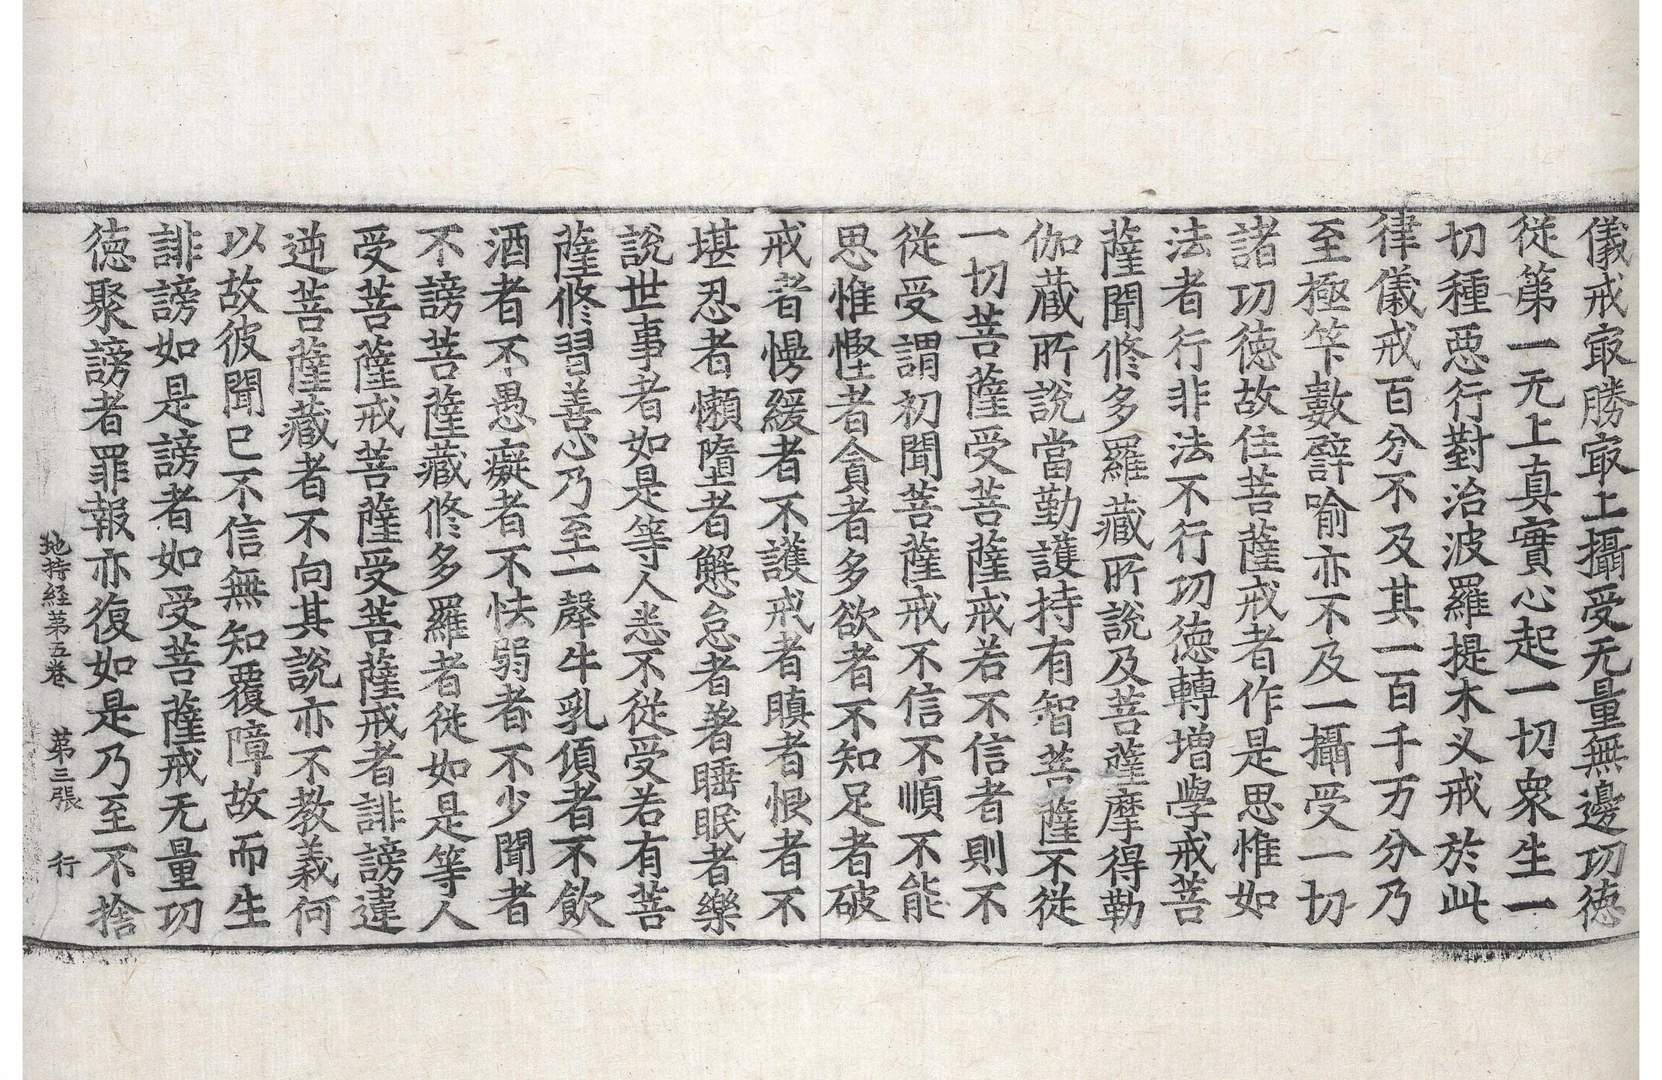 儀戒㝡勝㝡上攝受无量無邊功徳
従第一无上真實心起一切衆生一
切種惡行對治波羅提木叉戒於此
律儀戒百分不及其一百千万分乃
至極竿數譬喻亦不及一攝受一切
諸功徳故住菩薩戒者作是思惟如
法者行非法不行功徳轉增學戒菩
薩聞修多羅藏所説及菩薩摩得勒
伽藏所説當勤護持有智菩薩不従
一切菩薩受菩薩戒若不信者則不
従受謂初聞菩薩戒不信不順不能
思惟慳者貪者多欲者不知足者破
戒者慢緩者不護戒者瞋者恨者不
堪忍者懶墮者懈怠者著睡眠者樂
説世事者如是等人悉不従受若有菩
薩修習善心乃至一㲉牛乳傾者不飲
酒者不愚癡者不怯弱者不少聞者
不謗菩薩藏修多羅者従如是等人
受菩薩戒菩薩受菩薩戒者誹謗違
逆菩薩藏者不向其説亦不教義何
以故彼聞已不信無知覆障故而生
誹謗如是謗者如受菩薩戒无量功
徳聚謗者罪報亦復如是乃至不捨
地持経苐五巻 苐三張 行